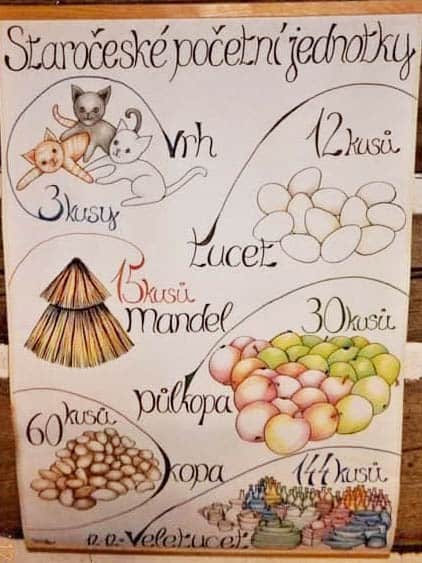 Staročeské početní jednotky
vrh
3 kusy
12 kusů
tucet
15 kusů
mandel
30 kusů
půlkopa
60 kusů
kopa
144 kusů
12·12=Veletucet